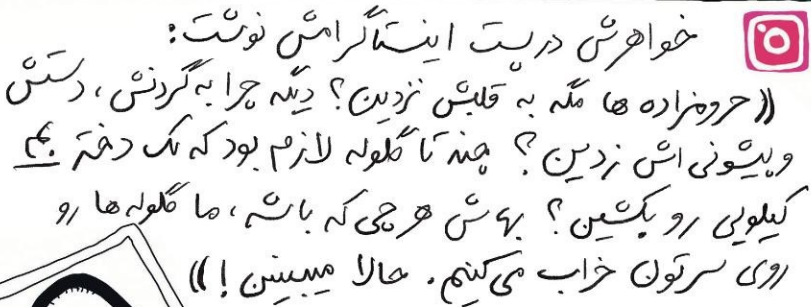 خواهرش در پست اینستاگرامش نوشت:
((حرومزاده ها مگه به قلبش نزدین؟ دیگه چرا به گردنش، دستش
و پیشونی اش زدین؟ چند تا گلوله لازم بود که یک دختر ۴۰
کیلویی رو بکشین؟ بهاش هر چی که باشه، ما گلوله ها رو
روی سرتون خراب می کنیم. حالا میبینین!))